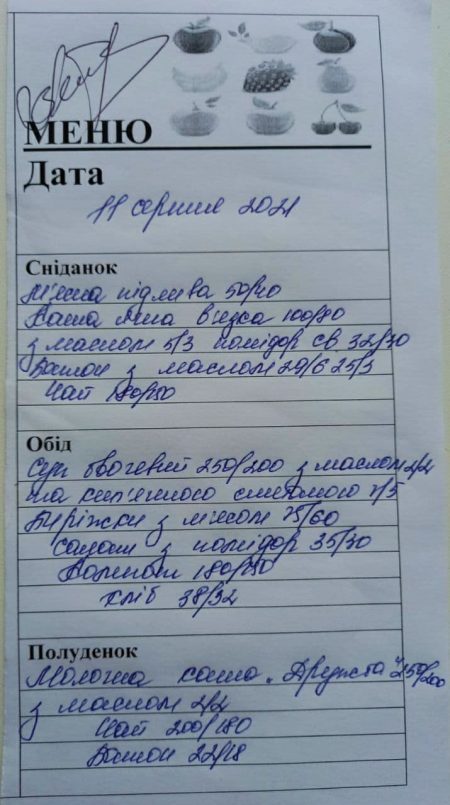 МЕНЮ
Дата
11 серпня 2021
Сніданок
М'ясна підлива 50/40
Каша ячна в'язка 100/80
з маслом 5/3 помідор св 32/30
Батон з маслом 29/6 25/5
Чай 180/150
Обід
Суп овочевий 250/200 з маслом 2/2
та кип'яченого сметаною 7/5
Пиріжки з м'ясом 75/60
Салат з помідор 35/30
Компот 180/150
Хліб 38/32
Полуденок
Молочна каша "Дружба" 250/200
з маслом 2/2
Чай 200/180
Батон 22/18